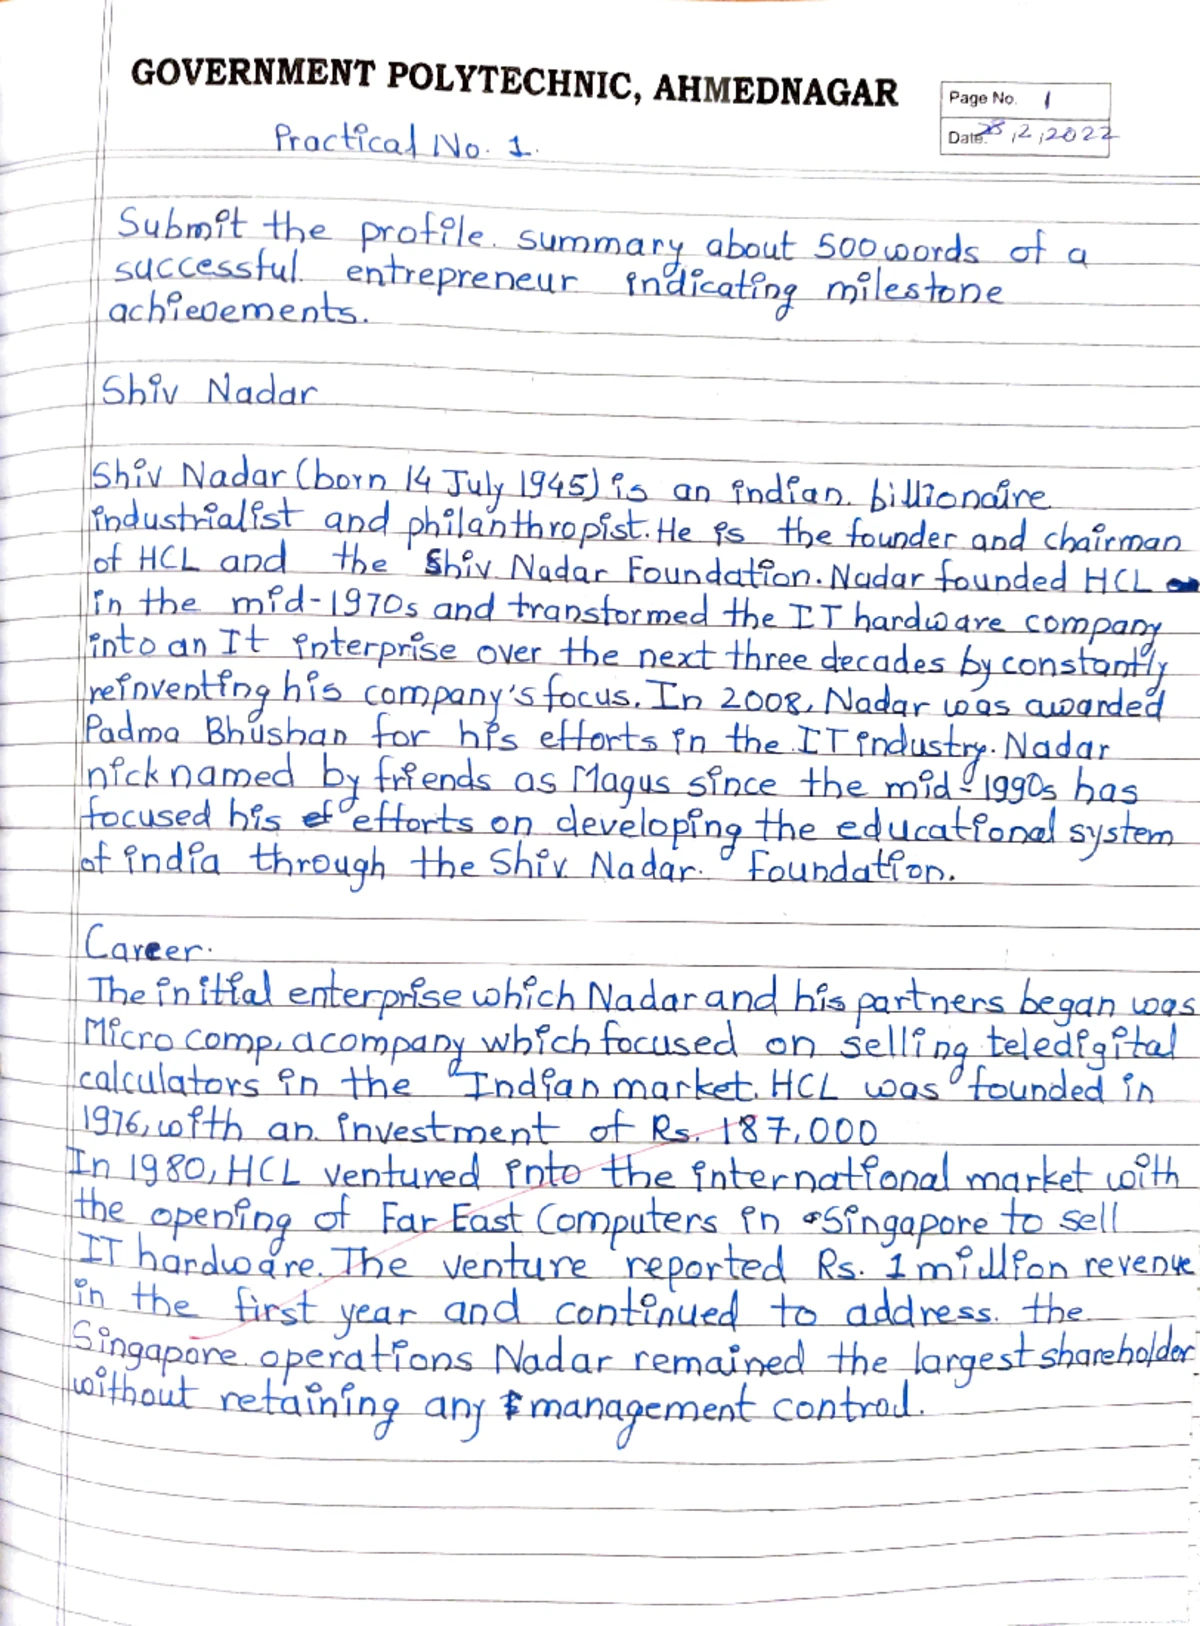 GOVERNMENT POLYTECHNIC, AHMEDNAGAR
Page No. 1
Date. 28,2,2022
Practical No. 1.
Submit the profile. summary about 500 words of a
successful. entrepreneur indicating milestone
achievements.
Shiv Nadar
Shiv Nadar (born 14 July 1945) is an indian. billionaire
industrialist and philanthropist. He is the founder and chairman
of HCL and the Shiv Nadar Foundation. Nadar founded HCL
in the mid-1970s and transformed the IT hardware company
into an It interprise over the next three decades by constantly
reinventing his company's focus. In 2008, Nadar was awarded
Padma Bhushan for his efforts in the IT industry. Nadar
nick named by friends as Magus since the mid-1990s has
focused his efforts on developing the educational system
of india through the Shiv Nadar. Foundation.
Career.
The initial enterprise which Nadar and his partners began was
Micro comp, a company which focused on selling teledigital
calculators in the Indian market. HCL was founded in
1976, with an investment of Rs. 187,000
In 1980, HCL ventured into the international market with
the opening of Far East Computers in Singapore to sell
IT hardware. The venture reported Rs. 1 million revenue
in the first year and continued to address. the
Singapore. operations Nadar remained the largest shareholder
without retaining any management controd.